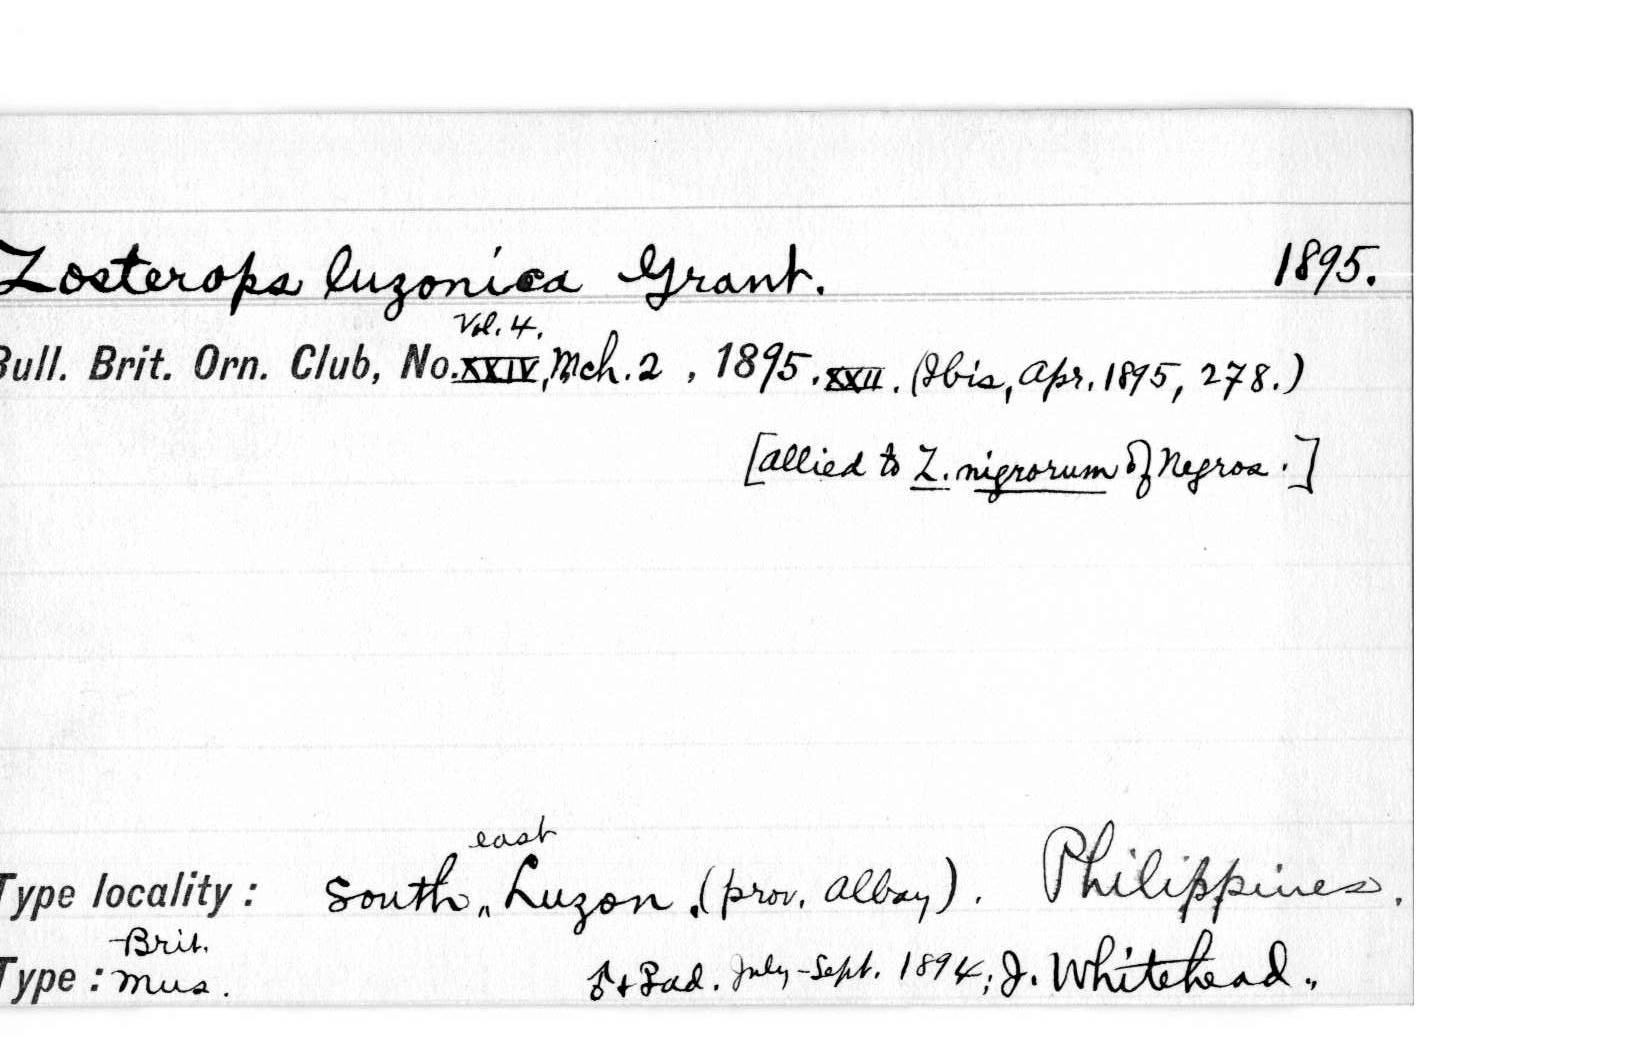 Zosterops luzonica Grant. 1895.
Vol. 4.
Bull. Brit. Orn. Club, No. XXIV, Mch. 2, 1895. XXII. (Ibis, Apr. 1895, 278.)
[allied to Z. nigrorum of Negros.]
east
Type locality: South Luzon, (prov. Albay). Philippines.
Brit.
Type: Mus. ♂+♀ad. July-Sept. 1894; J. Whitehead.